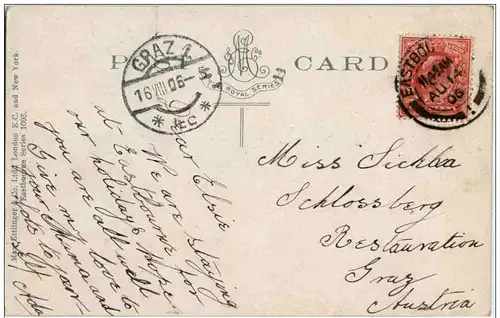 POST CARD
THE ROYAL SERIES
GRAZ 1
16 VIII 06
EASTBOU
AU 14
06
Max Ettlinger & Co., Ltd., London E.C. and New York.
Eastbourne Series 1098.
Dear Elsie
We are staying
at Eastbourne for
our holidays. Hope
you are all well
Give my love to
your Mama and
to your-
Miss Sichha
Schlossberg
Restauration
Graz
Austria